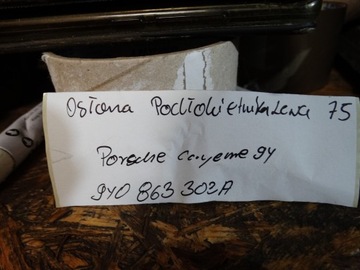 Osłona Podłokietnika Lewa 75
Porsche cayenne 9Y
9Y0 863 302A